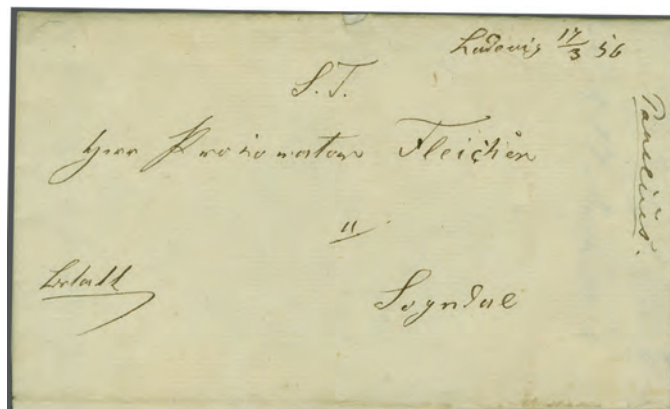 Ladevig 17/3 56
S. T.
Herr Prokurator Fleischer
"
Betalt
Sogndal